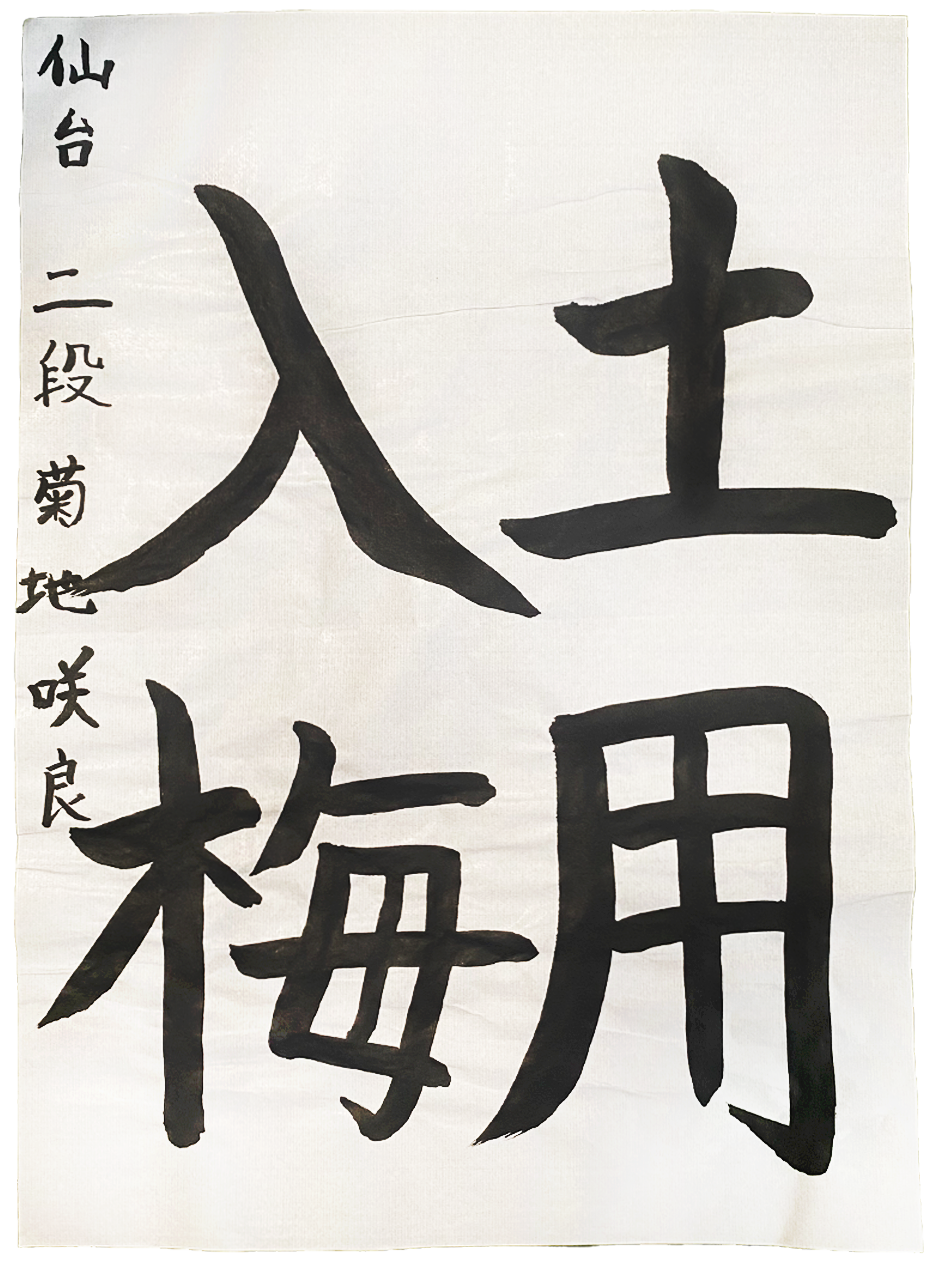 土用
入梅
仙台 二段 菊地咲良